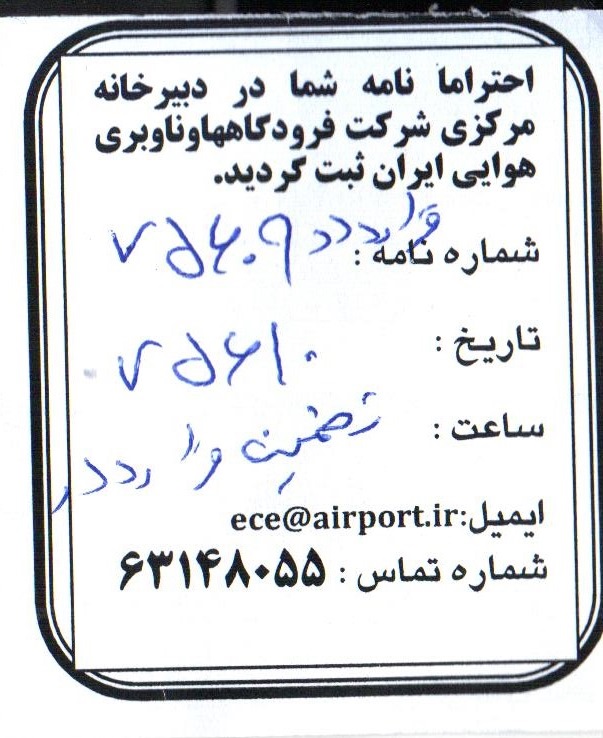 احتراما نامه شما در دبیرخانه
مرکزی شرکت فرودگاههاوناوبری
هوایی ایران ثبت گردید.
شماره نامه : قرارداد ۷۵۶۰۹
تاریخ : ۷۵۶۱۰
ساعت : تضمین قرارداد
ایمیل:ece@airport.ir
شماره تماس : ۶۳۱۴۸۰۵۵